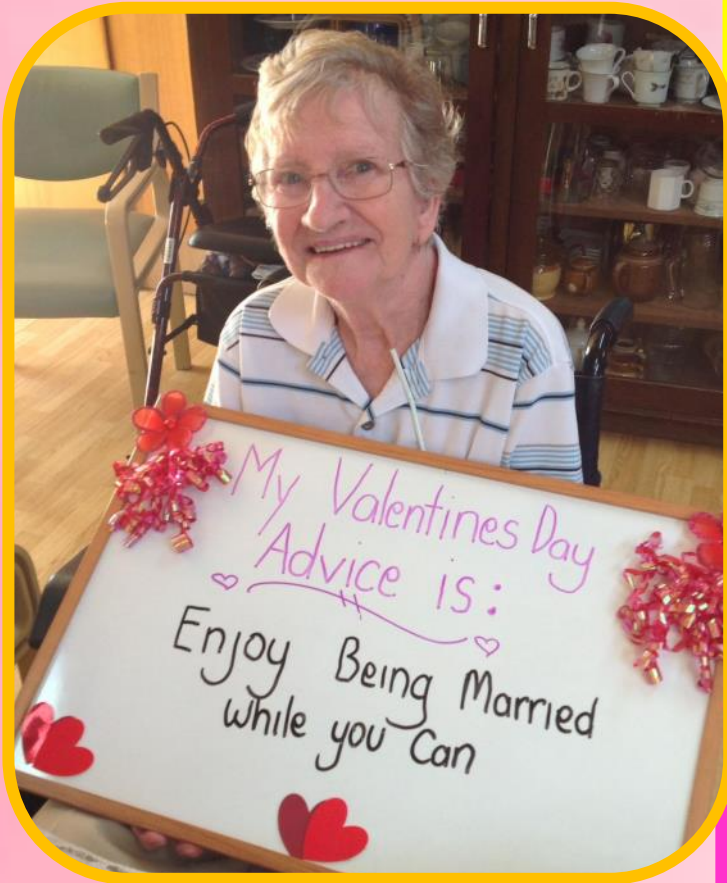 My Valentines Day
Advice is:
Enjoy Being Married
while you can